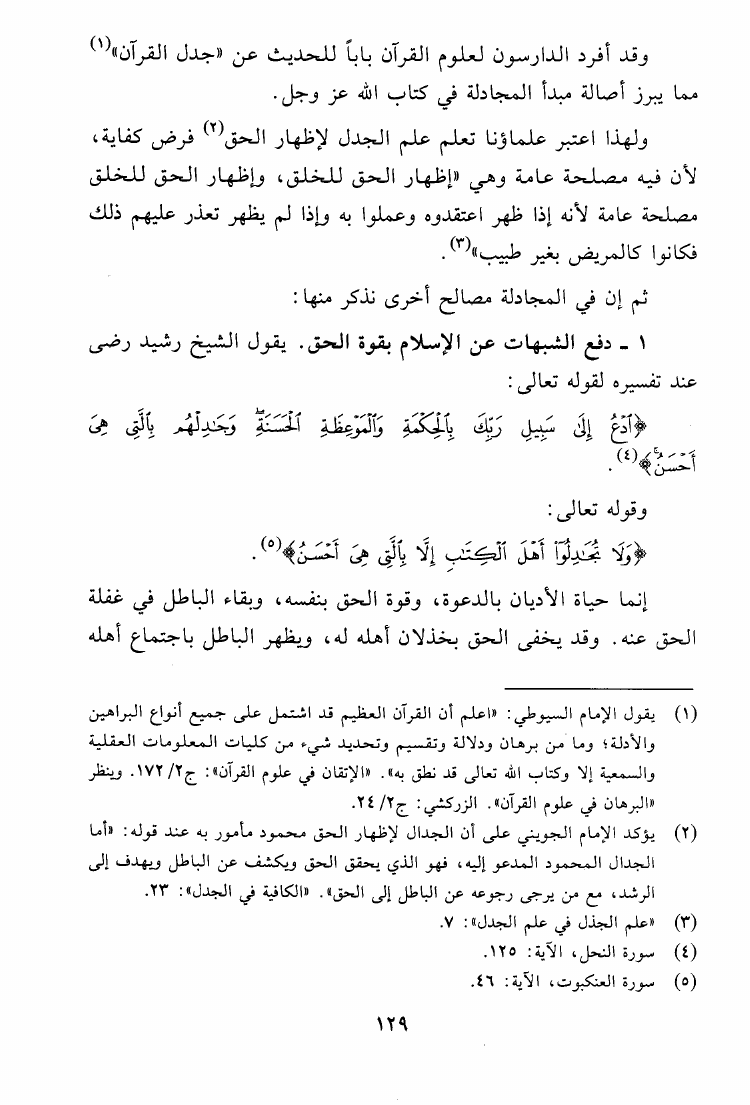 وقد أفرد الدارسون لعلوم القرآن باباً للحديث عن «جدل القرآن»(١)
مما يبرز أصالة مبدأ المجادلة في كتاب الله عز وجل.
ولهذا اعتبر علماؤنا تعلم علم الجدل لإظهار الحق(٢) فرض كفاية،
لأن فيه مصلحة عامة وهي «إظهار الحق للخلق، وإظهار الحق للخلق
مصلحة عامة لأنه إذا ظهر اعتقدوه وعملوا به وإذا لم يظهر تعذر عليهم ذلك
فكانوا كالمريض بغير طبيب»(٣).
ثم إن في المجادلة مصالح أخرى نذكر منها:
١ ـ دفع الشبهات عن الإسلام بقوة الحق. يقول الشيخ رشيد رضى
عند تفسيره لقوله تعالى:
﴿ٱدۡعُ إِلَىٰ سَبِيلِ رَبِّكَ بِٱلۡحِكۡمَةِ وَٱلۡمَوۡعِظَةِ ٱلۡحَسَنَةِۖ وَجَٰدِلۡهُم بِٱلَّتِي هِيَ
أَحۡسَنُۚ﴾(٤).
وقوله تعالى:
﴿وَلَا تُجَٰدِلُوٓاْ أَهۡلَ ٱلۡكِتَٰبِ إِلَّا بِٱلَّتِي هِيَ أَحۡسَنُ﴾(٥).
إنما حياة الأديان بالدعوة، وقوة الحق بنفسه، وبقاء الباطل في غفلة
الحق عنه. وقد يخفى الحق بخذلان أهله له، ويظهر الباطل باجتماع أهله
(١) يقول الإمام السيوطي: «اعلم أن القرآن العظيم قد اشتمل على جميع أنواع البراهين
والأدلة؛ وما من برهان ودلالة وتقسيم وتحديد شيء من كليات المعلومات العقلية
والسمعية إلا وكتاب الله تعالى قد نطق به». «الإتقان في علوم القرآن»: ج٢/ ١٧٢. وينظر
«البرهان في علوم القرآن». الزركشي: ج٢/ ٢٤.
(٢) يؤكد الإمام الجويني على أن الجدال لإظهار الحق محمود مأمور به عند قوله: «أما
الجدال المحمود المدعو إليه، فهو الذي يحقق الحق ويكشف عن الباطل ويهدف إلى
الرشد، مع من يرجى رجوعه عن الباطل إلى الحق». «الكافية في الجدل»: ٢٣.
(٣) «علم الجذل في علم الجدل»: ٧.
(٤) سورة النحل، الآية: ١٢٥.
(٥) سورة العنكبوت، الآية: ٤٦.
١٢٩